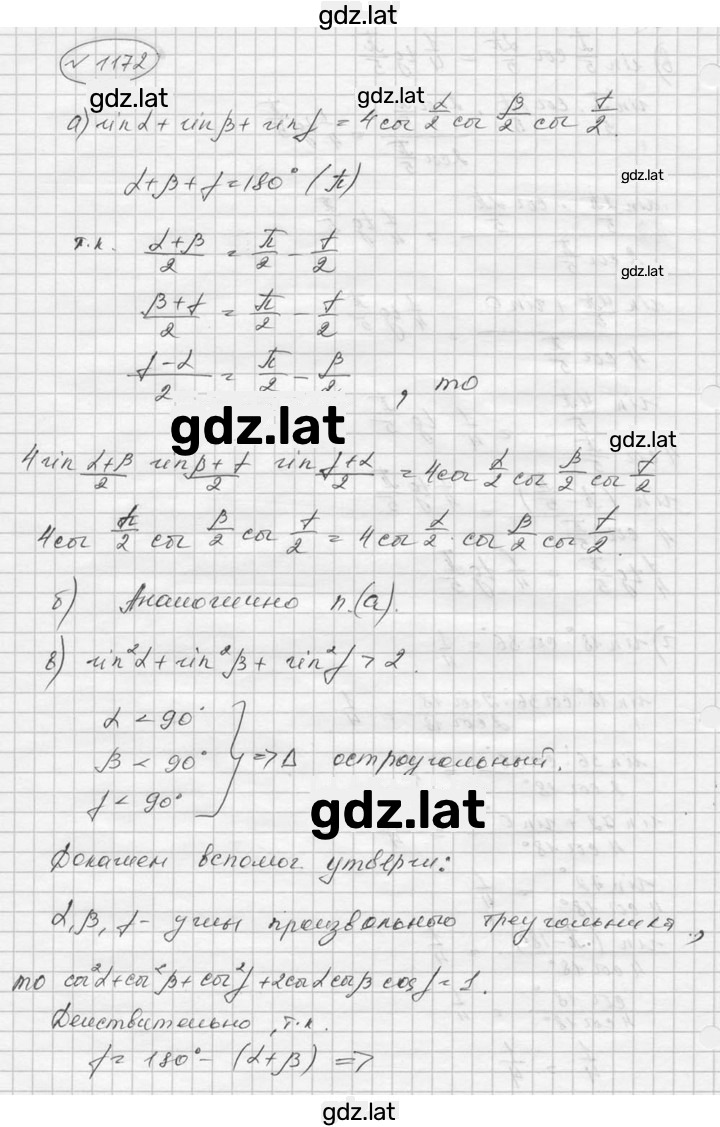 gdz.lat
№ 1172
gdz.lat
gdz.lat
а) sin α + sin β + sin γ = 4cos α/2 cos β/2 cos γ/2.
α + β + γ = 180° (π)
gdz.lat
т.к. (α+β)/2 = π/2 − γ/2
gdz.lat
(β+γ)/2 = π/2 − γ/2
(γ−α)/2 = π/2 − β/2, то
gdz.lat
gdz.lat
4 sin (α+β)/2 sin (β+γ)/2 sin (γ+α)/2 = 4cos α/2 cos β/2 cos γ/2
4cos π/2 cos β/2 cos γ/2 = 4cos α/2 · cos β/2 cos γ/2.
б) Аналогично п.(а).
в) sin²α + sin²β + sin²γ > 2.
α < 90°
β < 90° } => Δ остроугольный.
γ < 90°
gdz.lat
Докажем вспомог утверж:
α, β, γ - углы произвольного треугольника,
то cos²α + cos²β + cos²γ + 2cosα cosβ cosγ = 1.
Действительно, т.к.
γ = 180° − (α+β) =>
gdz.lat